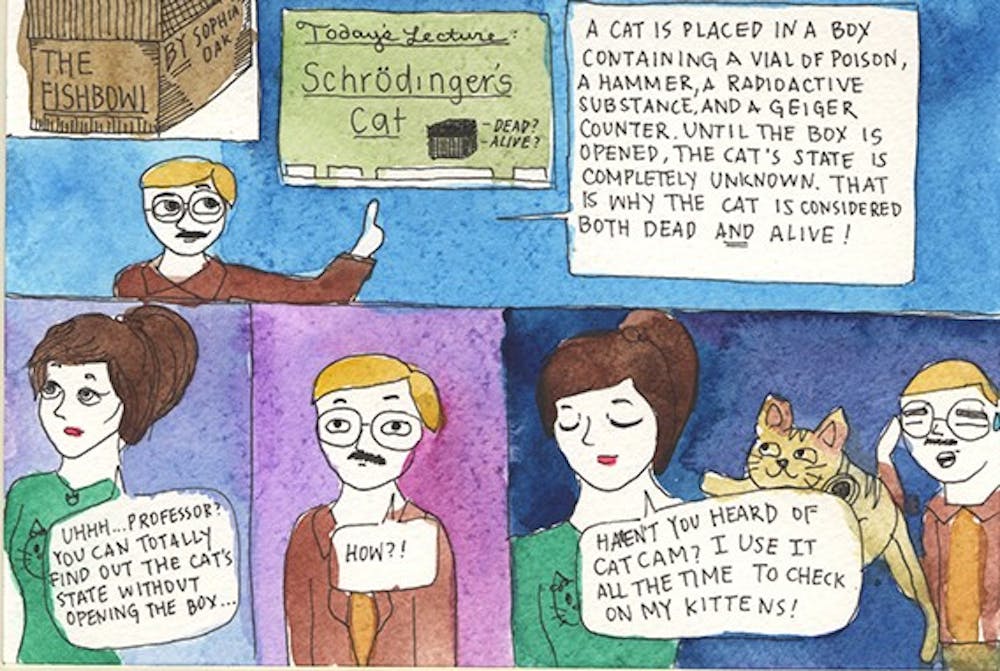 THE
FISHBOWL
BY SOPHIA
OAK
Today's Lecture:
Schrödinger's
Cat
-DEAD?
-ALIVE?
A CAT IS PLACED IN A BOX
CONTAINING A VIAL OF POISON,
A HAMMER, A RADIOACTIVE
SUBSTANCE, AND A GEIGER
COUNTER. UNTIL THE BOX IS
OPENED, THE CAT'S STATE IS
COMPLETELY UNKNOWN. THAT
IS WHY THE CAT IS CONSIDERED
BOTH DEAD AND ALIVE!
UHHH...PROFESSOR?
YOU CAN TOTALLY
FIND OUT THE CAT'S
STATE WITHOUT
OPENING THE BOX...
HOW?!
HAVEN'T YOU HEARD OF
CAT CAM? I USE IT
ALL THE TIME TO CHECK
ON MY KITTENS!